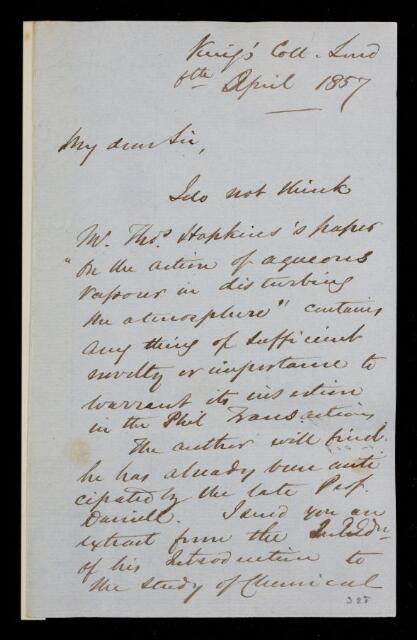 King's Coll. Lond
8th April 1857
My dear Sir,
I do not think
Mr. Thos. Hopkins's paper
"On the action of aqueous
vapour in disturbing
the atmosphere" contains
any thing of sufficient
novelty or importance to
warrant its insertion
in the Phil Transactions
The author will find
he has already been anti
cipated by the late Prof.
Daniell. I send you an
extract from the
of his Introduction to
the study of Chemical
328